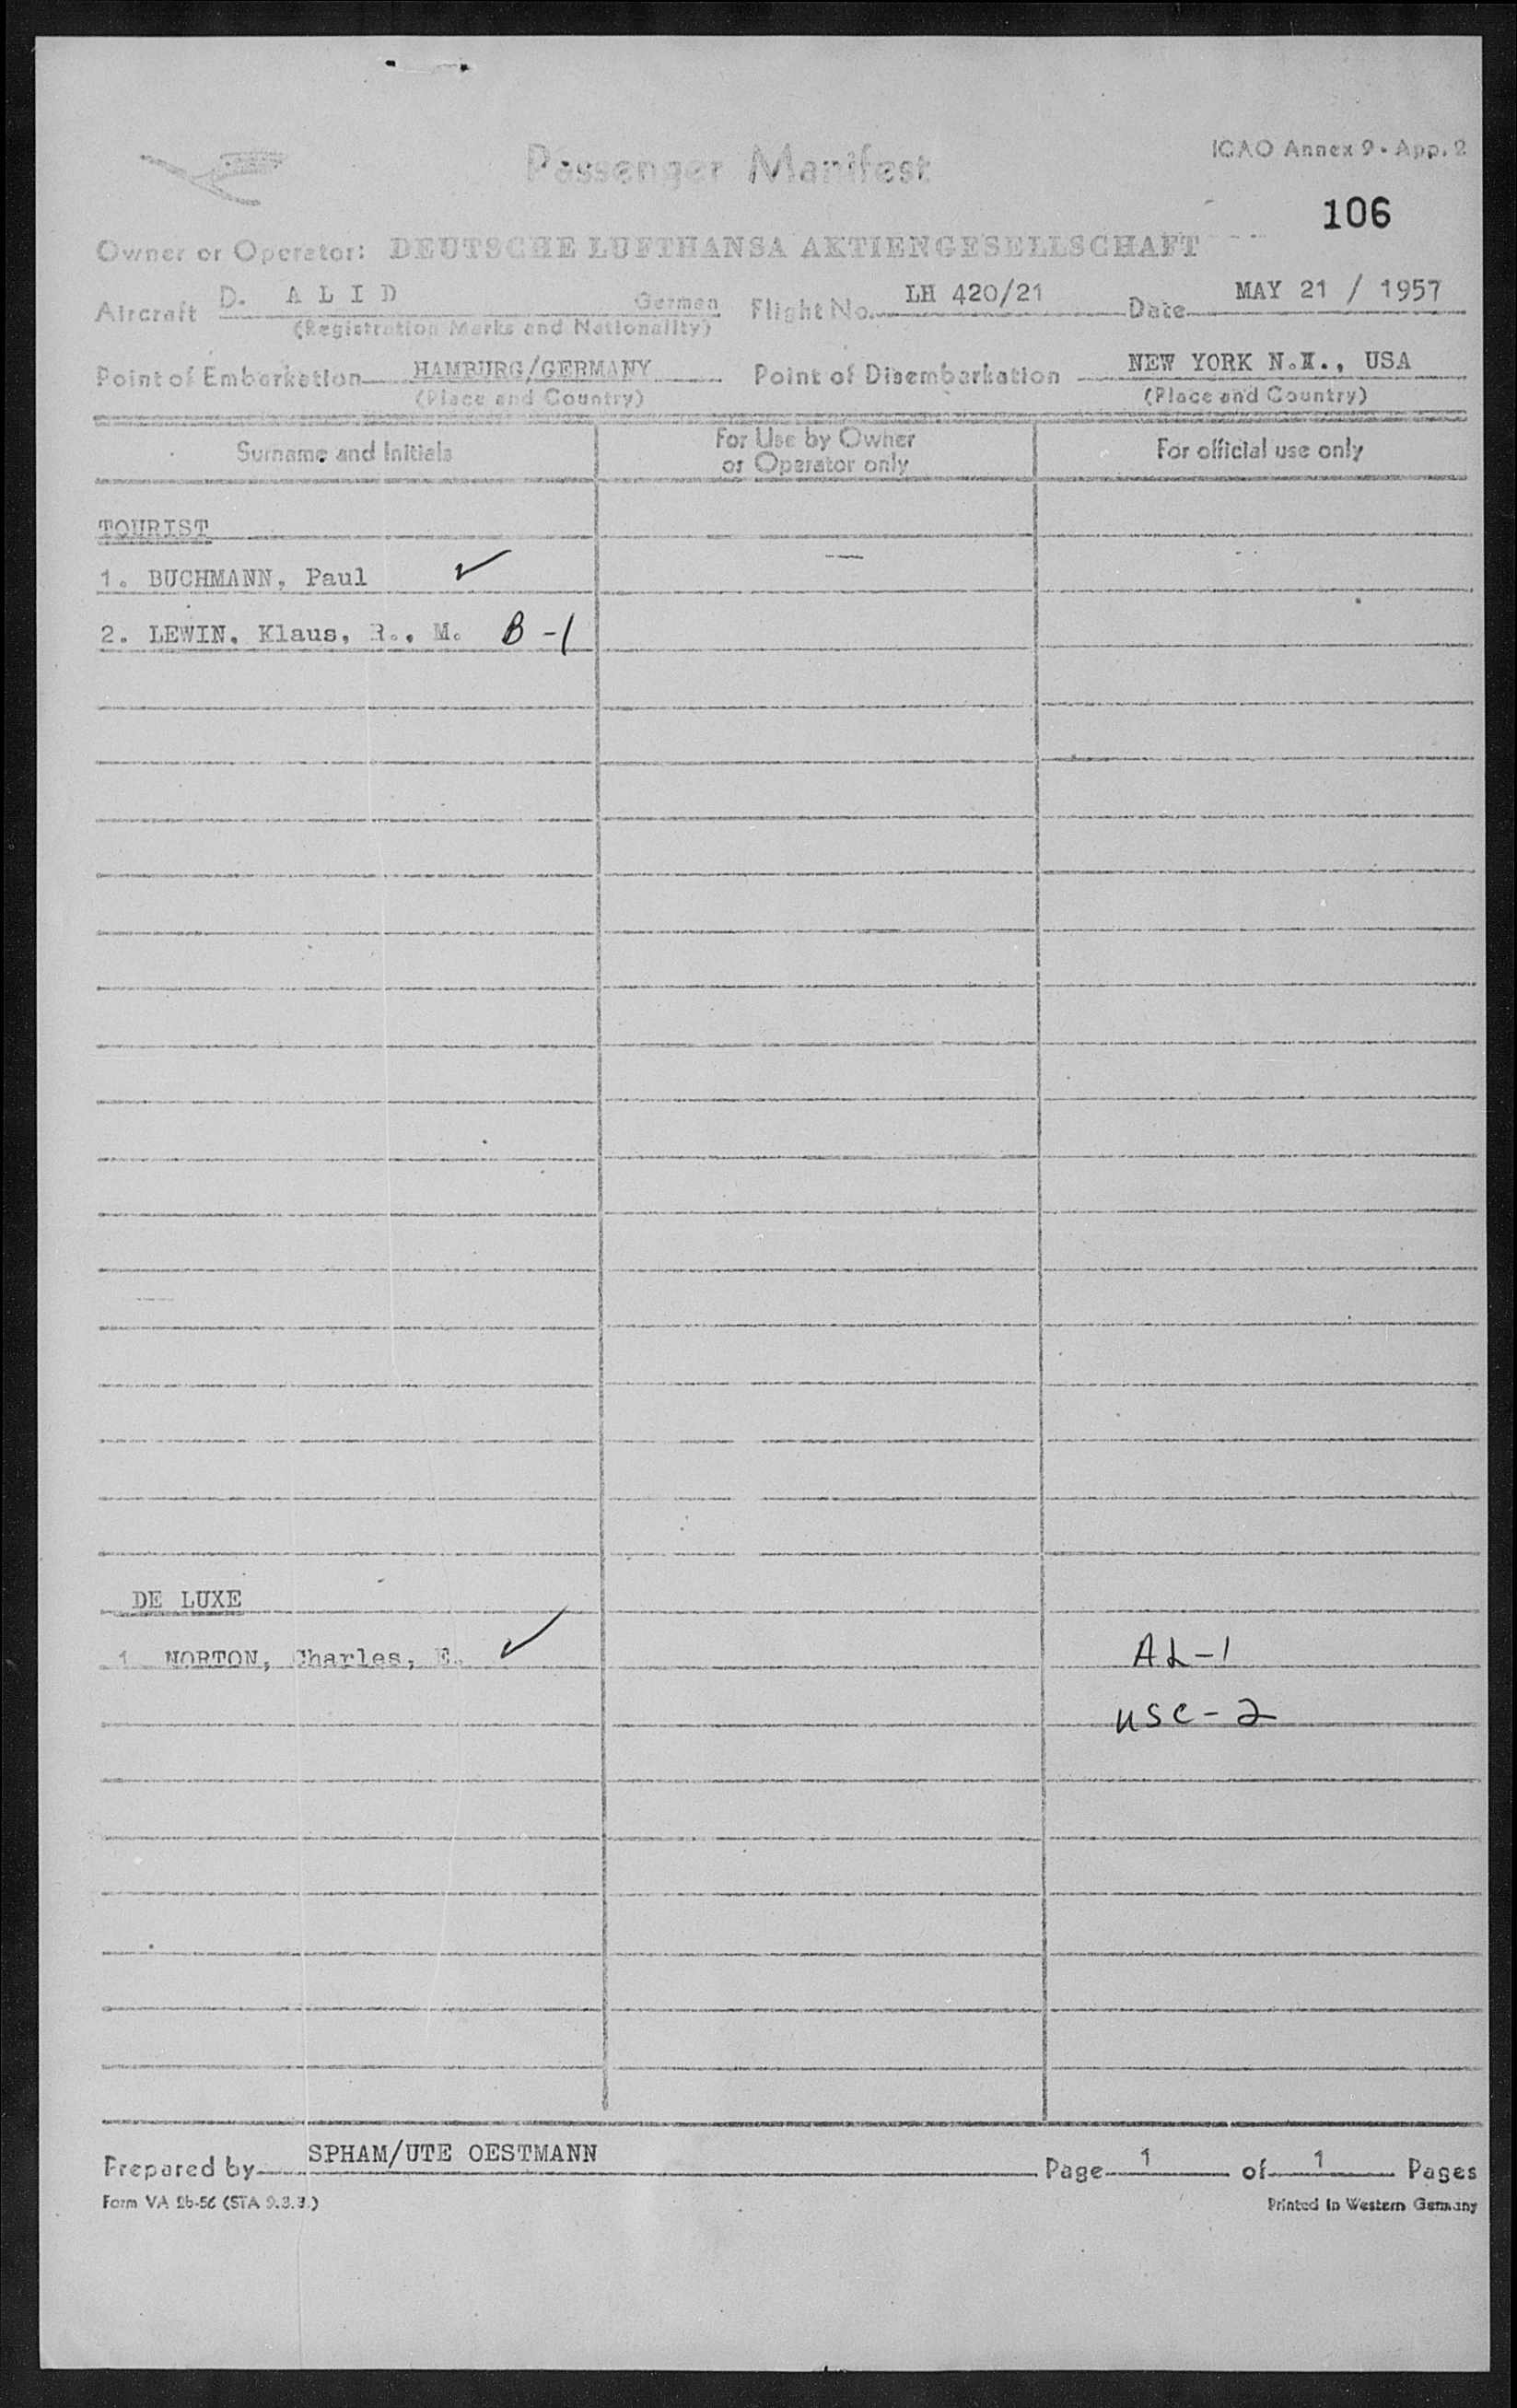 Passenger Manifest
ICAO Annex 9 - App. 2
106
Owner or Operator: DEUTSCHE LUFTHANSA AKTIENGESELLSCHAFT
Aircraft D. A L I D German Flight No. LH 420/21 Date MAY 21 / 1957
(Registration Marks and Nationality)
Point of Embarkation HAMBURG/GERMANY Point of Disembarkation NEW YORK N.Y., USA
(Place and Country) (Place and Country)
Surname and Initials For Use by Owner or Operator only For official use only
TOURIST
1. BUCHMANN, Paul ✓
2. LEWIN, Klaus, R., M. B-1
DE LUXE
1 NORTON, Charles, E. ✓ AL-1
USC-2
Prepared by SPHAM/UTE OESTMANN Page 1 of 1 Pages
Form VA 2b-56 (STA 9.3.3.) Printed in Western Germany